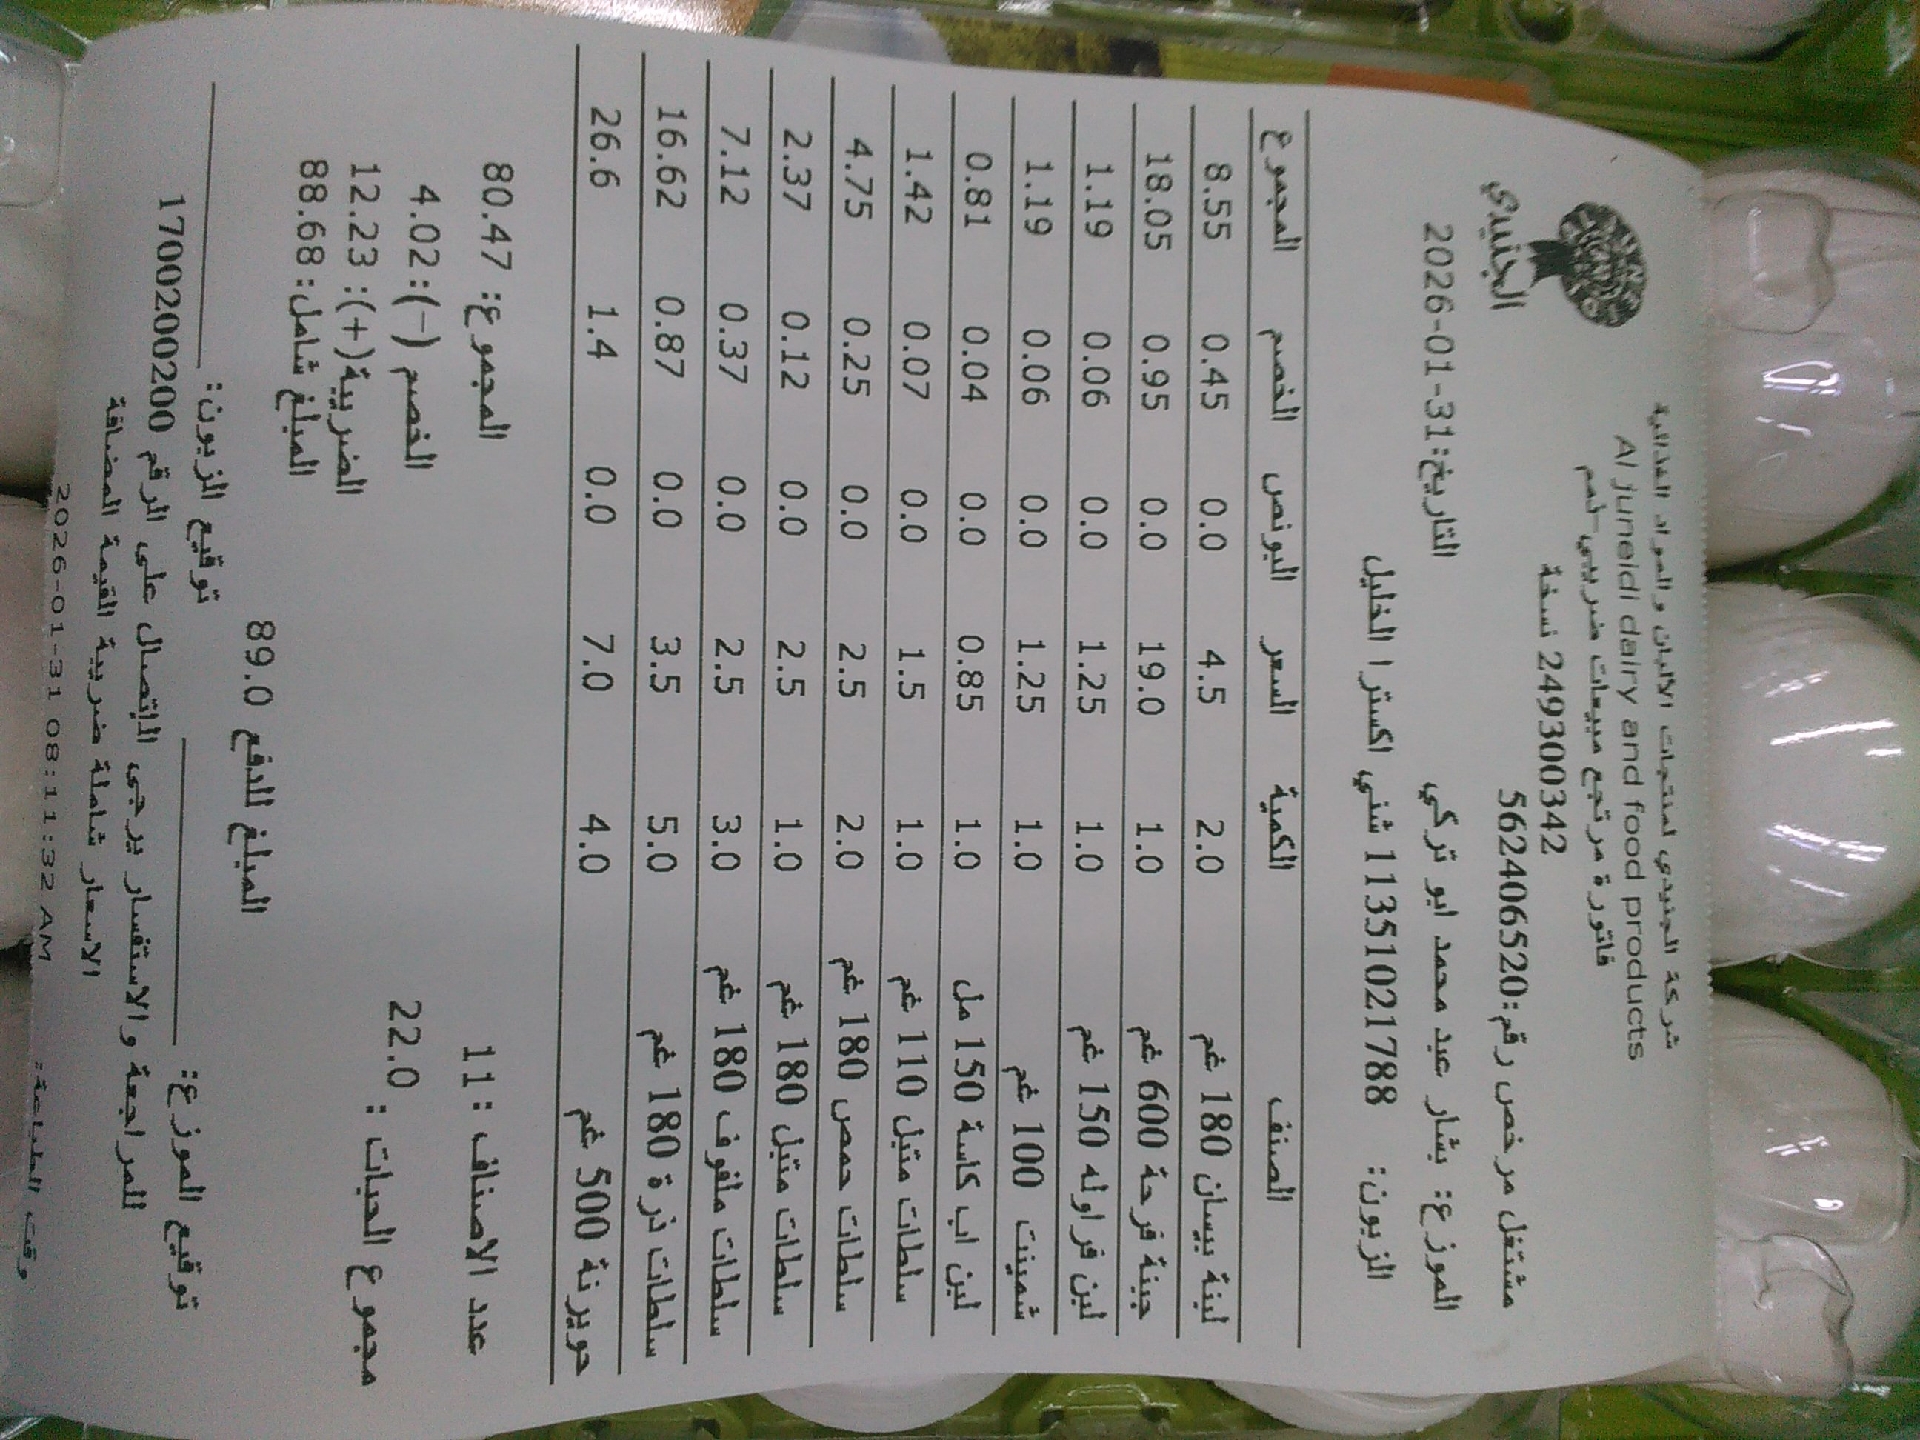 شركة الجنيدي لمنتجات الالبان والمواد الغذائية
Al juneidi dairy and food products
فاتورة مرتجع مبيعات ضريبي-ذمم
249300342 نسخة
الجنيدي
مشتغل مرخص رقم:562406520
الموزع: بشار عبد محمد ابو تركي التاريخ:2026-01-31
الزبون: 1135102178‎8 شني اكسترا الخليل
الصنف الكمية السعر البونص الخصم المجموع
لبنة بيسان 180 غم 2.0 4.5 0.0 0.45 8.55
جبنة فرحة 600 غم 1.0 19.0 0.0 0.95 18.05
لبن فراوله 150 غم 1.0 1.25 0.0 0.06 1.19
شمينت 100 غم 1.0 1.25 0.0 0.06 1.19
لبن اب كاسة 150 مل 1.0 0.85 0.0 0.04 0.81
سلطات متبل 110 غم 1.0 1.5 0.0 0.07 1.42
سلطات حمص 180 غم 2.0 2.5 0.0 0.25 4.75
سلطات متبل 180 غم 1.0 2.5 0.0 0.12 2.37
سلطات ملفوف 180 غم 3.0 2.5 0.0 0.37 7.12
سلطات ذرة 180 غم 5.0 3.5 0.0 0.87 16.62
حويرنة 500 غم 4.0 7.0 0.0 1.4 26.6
عدد الاصناف : 11 المجموع: 80.47
مجموع الحبات : 22.0 الخصم (-):4.02
الضريبة(+): 12.23
المبلغ شامل: 88.68
المبلغ للدفع 89.0
توقيع الموزع: توقيع الزبون:
للمراجعة والاستفسار يرجى الاتصال على الرقم 1700200200
الاسعار شاملة ضريبة القيمة المضافة
وقت الطباعة: 2026-01-31 08:11:32 AM